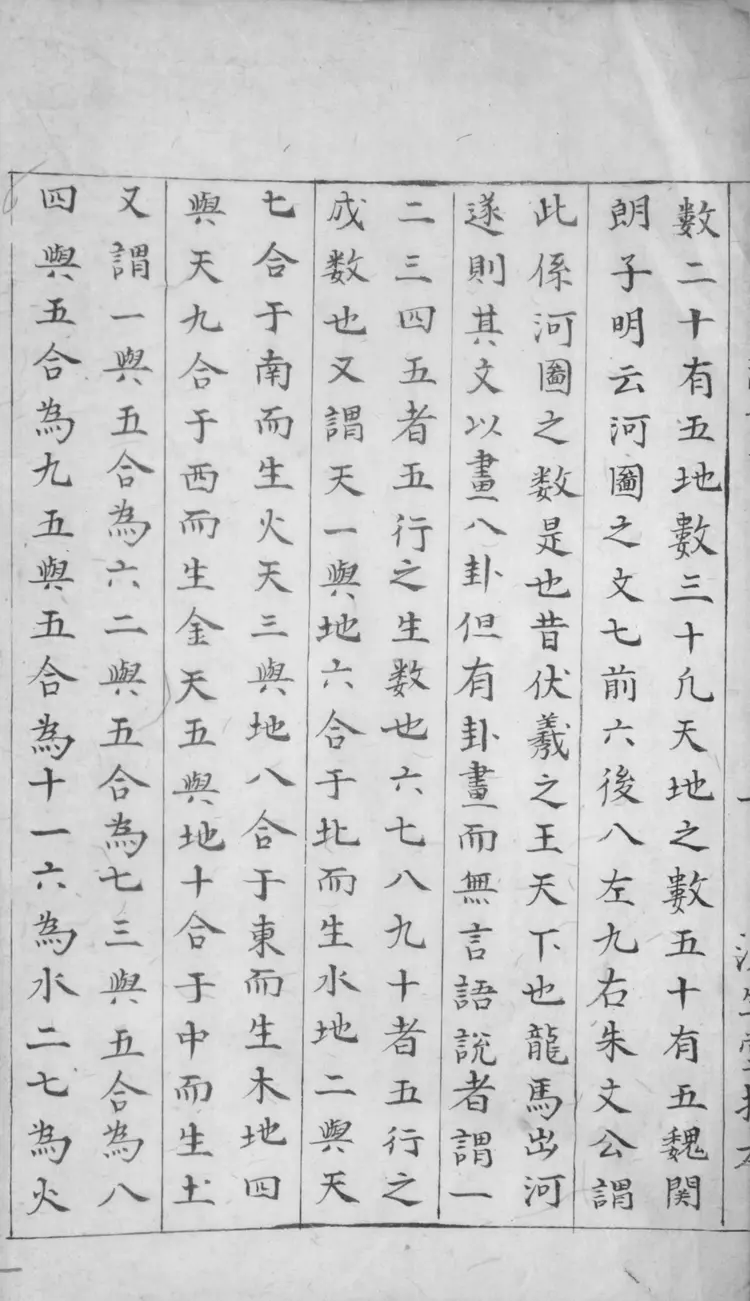 數二十有五地數三十凢天地之數五十有五魏関
朗子明云河圖之文七前六後八左九右朱文公謂
此係河圖之数是也昔伏羲之王天下也龍馬出河
遂則其文以畫八卦但有卦畫而無言語說者謂一
二三四五者五行之生数也六七八九十者五行之
成数也又謂天一與地六合于北而生水地二與天
七合于南而生火天三與地八合于東而生木地四
與天九合于西而生金天五與地十合于中而生土
又謂一與五合為六二與五合為七三與五合為八
四與五合為九五與五合為十一六為水二七為火